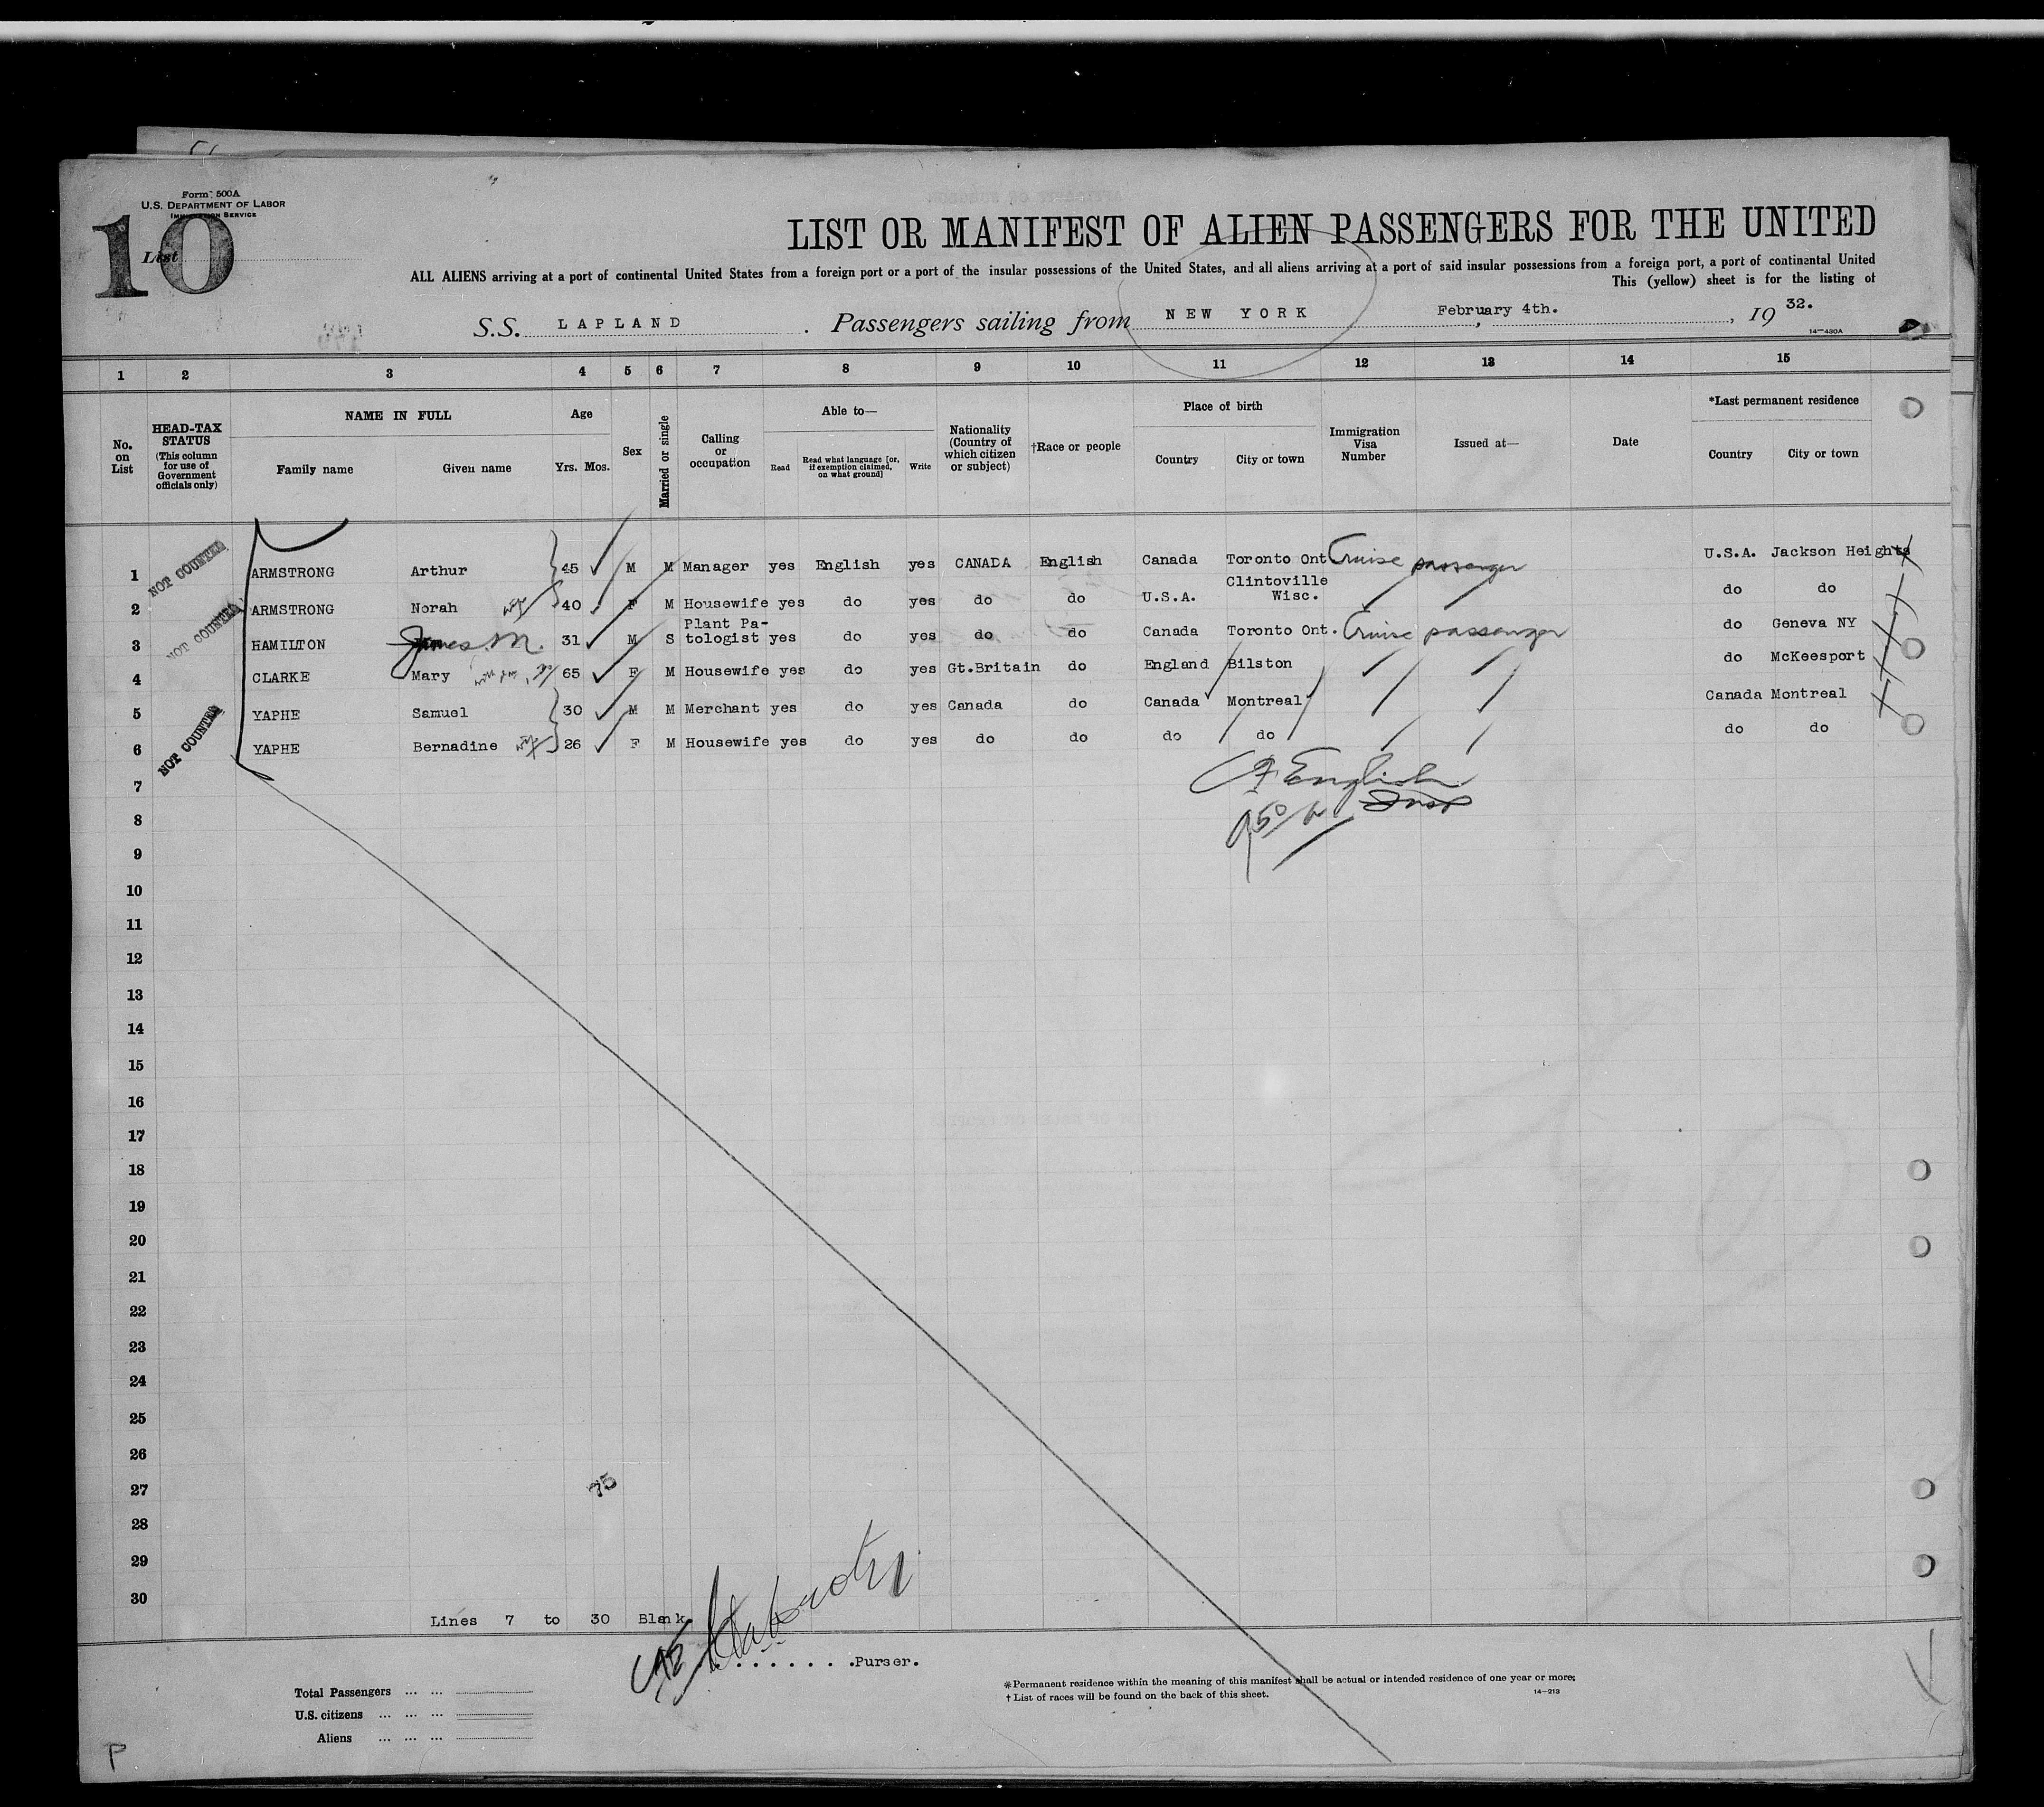 Form 500A
U.S. DEPARTMENT OF LABOR
IMMIGRATION SERVICE
List 10
LIST OR MANIFEST OF ALIEN PASSENGERS FOR THE UNITED
ALL ALIENS arriving at a port of continental United States from a foreign port or a port of the insular possessions of the United States, and all aliens arriving at a port of said insular possessions from a foreign port, a port of continental United
This (yellow) sheet is for the listing of
S.S. LAPLAND . Passengers sailing from NEW YORK , February 4th. , 19 32.
14—430A
1 2 3 4 5 6 7 8 9 10 11 12 13 14 15
No. on List
HEAD-TAX STATUS (This column for use of Government officials only)
NAME IN FULL
Family name Given name
Age
Yrs. Mos.
Sex
Married or single
Calling or occupation
Able to—
Read Read what language [or, if exemption claimed, on what ground] Write
Nationality (Country of which citizen or subject)
†Race or people
Place of birth
Country City or town
Immigration Visa Number
Issued at—
Date
*Last permanent residence
Country City or town
1 NOT COUNTED ARMSTRONG Arthur 45 M M Manager yes English yes CANADA English Canada Toronto Ont Cruise passenger U.S.A. Jackson Heights
2 NOT COUNTED ARMSTRONG Norah wife 40 F M Housewife yes do yes do do U.S.A. Clintoville Wisc. do do
3 HAMILTON James M. 31 M S Plant Pa-tologist yes do yes do do Canada Toronto Ont. Cruise passenger do Geneva NY
4 CLARKE Mary 65 F M Housewife yes do yes Gt.Britain do England Bilston do McKeesport
5 NOT COUNTED YAPHE Samuel 30 M M Merchant yes do yes Canada do Canada Montreal Canada Montreal
6 YAPHE Bernadine wife 26 F M Housewife yes do yes do do do do do do
7
English
Insp
8
9
10
11
12
13
14
15
16
17
18
19
20
21
22
23
24
25
26
27
75
28
29
30
Lines 7 to 30 Blank
. . . . . . . .Purser.
Total Passengers ... ...
U.S. citizens ... ... ...
Aliens ... ... ...
*Permanent residence within the meaning of this manifest shall be actual or intended residence of one year or more.
† List of races will be found on the back of this sheet.
14—213
P